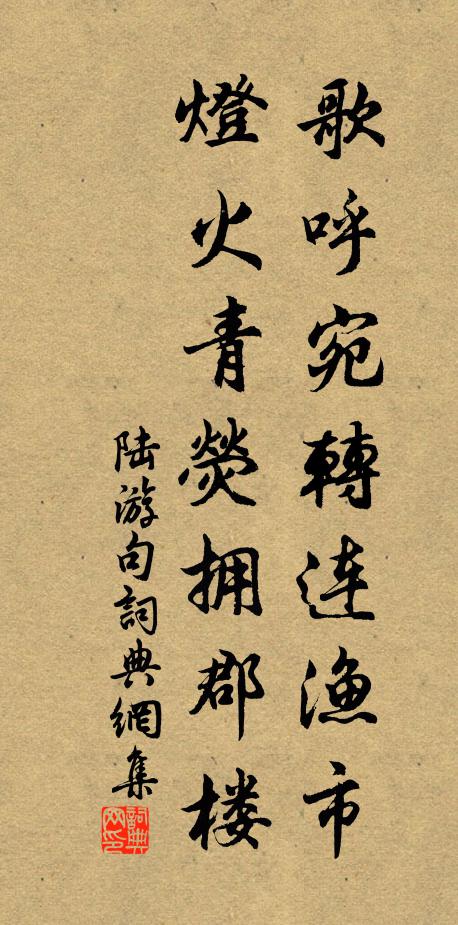 歌呼宛轉連漁市
燈火青熒拥郡楼
陆游句詞典網集
詞典網印